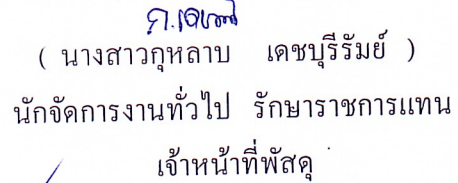 ( นางสาวกุหลาบ เดชบุรีรัมย์ )
นักจัดการงานทั่วไป รักษาราชการแทน
เจ้าหน้าที่พัสดุ